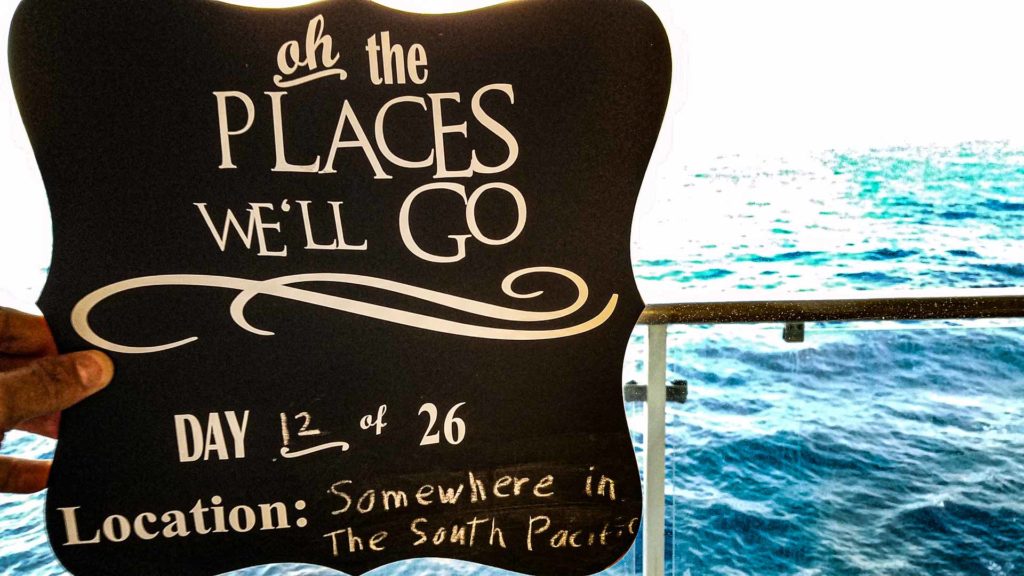 oh the
PLACES
WE'LL GO
DAY 12 of 26
Location: Somewhere in
The South Pacific